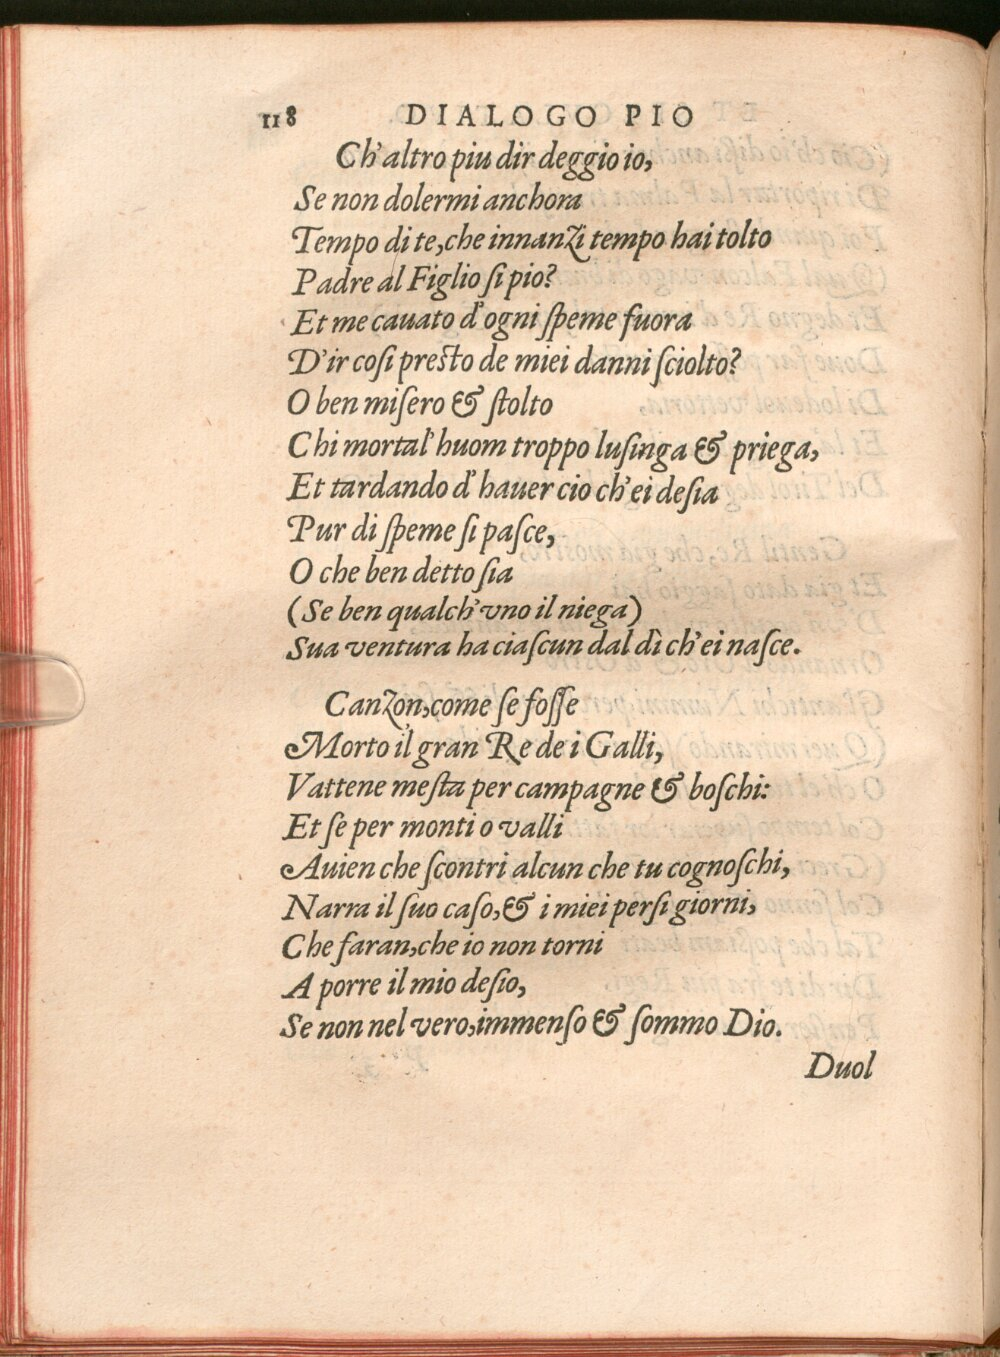 118 DIALOGO PIO
Ch'altro piu dir deggio io,
Se non dolermi anchora
Tempo di te, che innanzi tempo hai tolto
Padre al Figlio ſi pio?
Et me cauato d'ogni ſpeme fuora
D'ir coſi preſto de miei danni ſciolto?
O ben miſero & ſtolto
Chi mortal' huom troppo luſinga & priega,
Et tardando d'hauer cio ch'ei deſia
Pur di ſpeme ſi paſce,
O che ben detto ſia
(Se ben qualch'vno il niega)
Sua ventura ha ciaſcun dal dì ch'ei naſce.
Canzon, come ſe foſſe
Morto il gran Re de i Galli,
Vattene meſta per campagne & boſchi:
Et ſe per monti o valli
Auien che ſcontri alcun che tu cognoſchi,
Narra il ſuo caſo, & i miei perſi giorni,
Che faran, che io non torni
A porre il mio deſio,
Se non nel vero, immenſo & ſommo Dio.
Duol